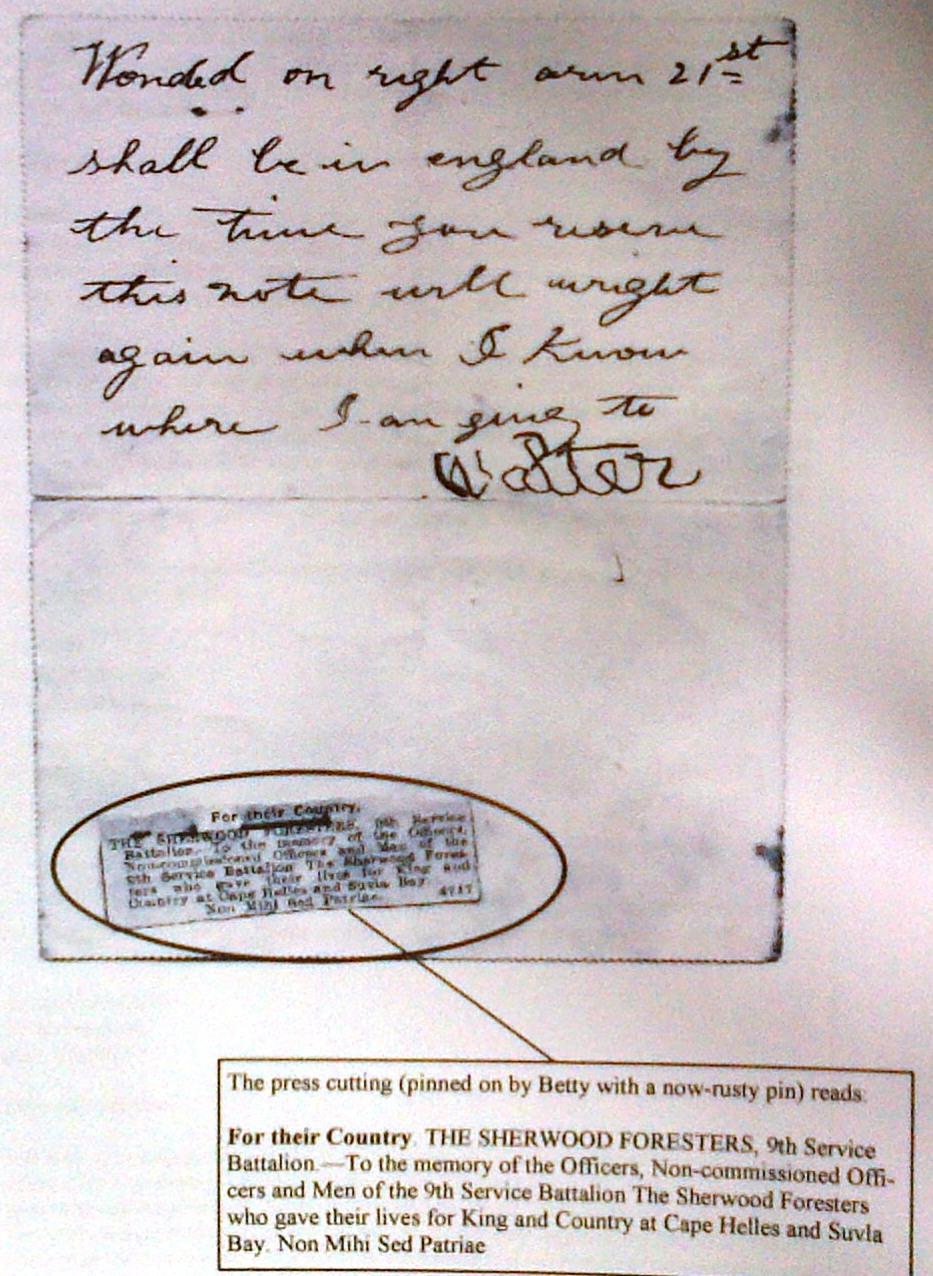 Wonded on right arm 21st
shall be in england by
the time you reseve
this note will wright
again when I Know
where I am going to
Walter
For their Country.
THE SHERWOOD FORESTERS, 9th Service
Battalion.—To the memory of the Officers,
Non-commissioned Officers and Men of the
9th Service Battalion The Sherwood Fores-
ters who gave their lives for King and
Country at Cape Helles and Suvla Bay.
Non Mihi Sed Patriae. 4717
The press cutting (pinned on by Betty with a now-rusty pin) reads:
For their Country. THE SHERWOOD FORESTERS, 9th Service
Battalion.—To the memory of the Officers, Non-commissioned Offi-
cers and Men of the 9th Service Battalion The Sherwood Foresters
who gave their lives for King and Country at Cape Helles and Suvla
Bay. Non Mihi Sed Patriae